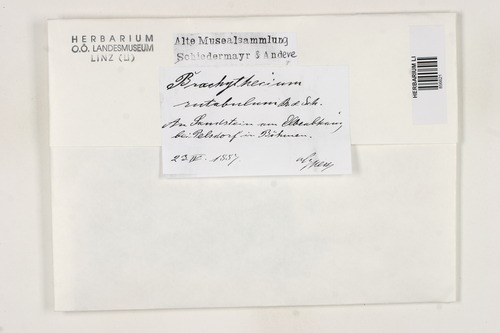 HERBARIUM
O.Ö. LANDESMUSEUM
LINZ (LI)
Alte Musealsammlung
Schiedermayr & Andere
HERBARIUM LI
Brachythecium
rutabulum Br. & Sch.
An Sandstein am
bei in Böhmen.
23 1887